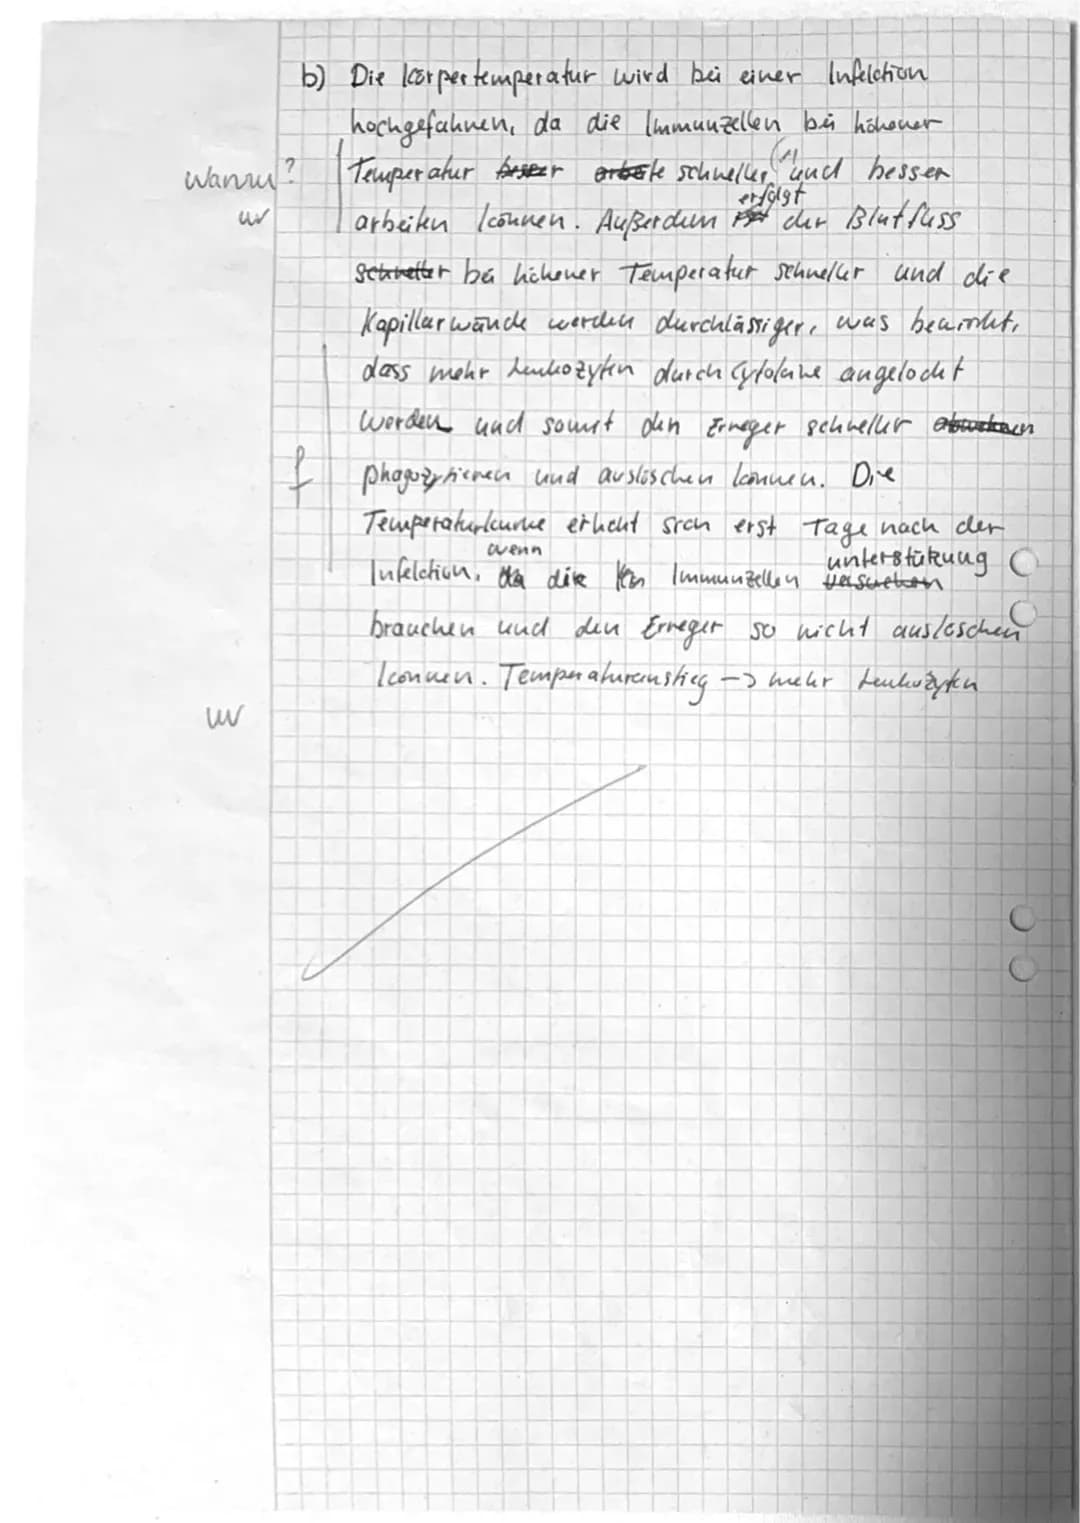 b) Die Körpertemperatur wird bei einer Infektion
hochgefahren, da die Immunzellen bei höherer
Warum? Temperatur besser schneller und besser
uv arbeiten können. Außerdem erfolgt der Blutfluss
schneller bei höherer Temperatur schneller und die
Kapillarwände werden durchlässiger, was bewirkt,
dass mehr Leukozyten durch Cytokine angelockt
werden und somit den Erreger schneller abwehren
f phagozytieren und auslöschen können. Die
Temperaturkurve erhöht sich erst Tage nach der
Infektion, da wenn die Immunzellen versuchen unterstützung
brauchen und den Erreger so nicht auslöschen
können. Temperaturanstieg -> mehr Leukozyten
uv